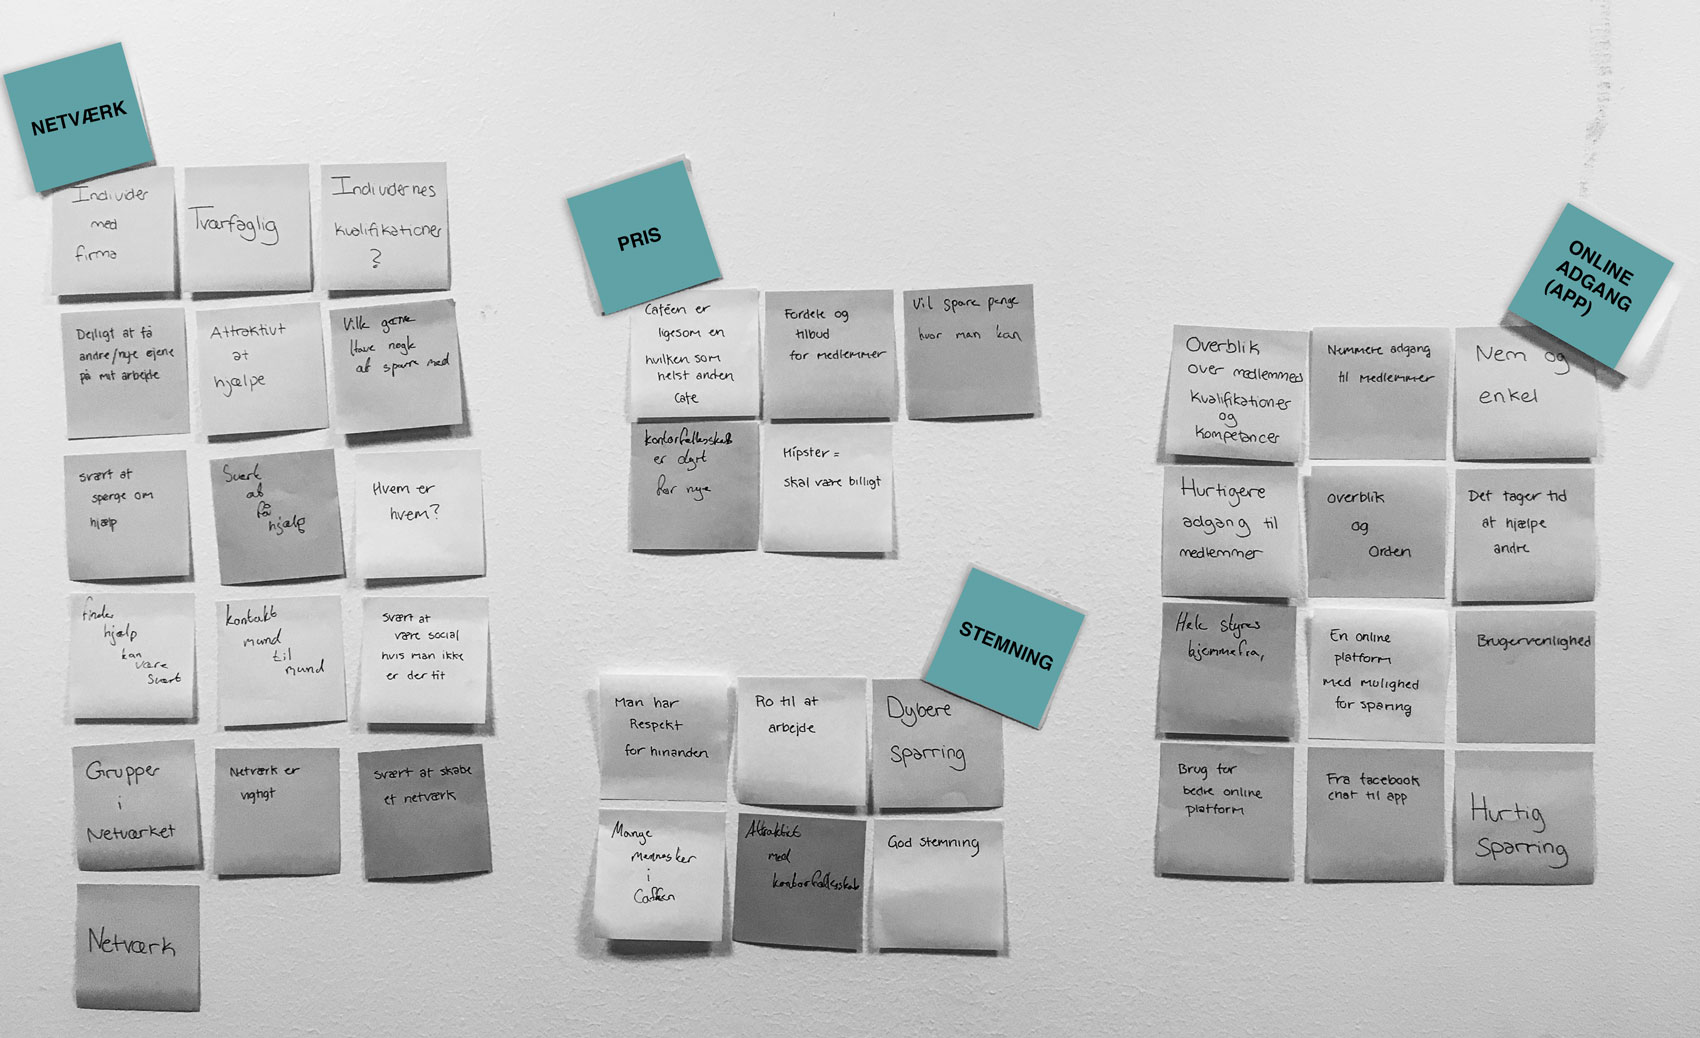 NETVÆRK
Individer
med
firma
Tværfaglig
Individernes
kvalifikationer
?
Dejligt at få
andre/nye øjene
på mit arbejde
Attraktivt
at
hjælpe
Ville gerne
have nogle
at sparre med
svært at
spørge om
hjælp
Svært
at
få
hjælp
Hvem er
hvem?
finde
hjælp
kan
være
Svært
kontakt
mund
til
mund
svært at
være social
hvis man ikke
er der tit
Grupper
i
Netværket
Netværk er
vigtigt
svært at skabe
et netværk
Netværk
PRIS
Caféen er
ligesom en
hvilken som
helst anden
Cafe
Fordele og
tilbud
for medlemmer
Vil spare penge
hvor man kan
kontorfællesskab
er dyrt
for nye
Hipster =
skal være billigt
STEMNING
Man har
Respekt
for hinanden
Ro til at
arbejde
Dybere
Sparring
Mange
mennesker
i
Caféen
Attraktivt
med
kontorfællesskab
God stemning
ONLINE
ADGANG
(APP)
Overblik
over medlemmes
kvalifikationer
og
kompetancer
Nemmere adgang
til medlemmer
Nem og
enkel
Hurtigere
adgang til
medlemmer
overblik
og
Orden
Det tager tid
at hjælpe
andre
styres
hjemmefra,
En online
platform
med mulighed
for sparing
Brugervenlighed
Brug for
bedre online
platform
Fra facebook
chat til app
Hurtig
Sparring